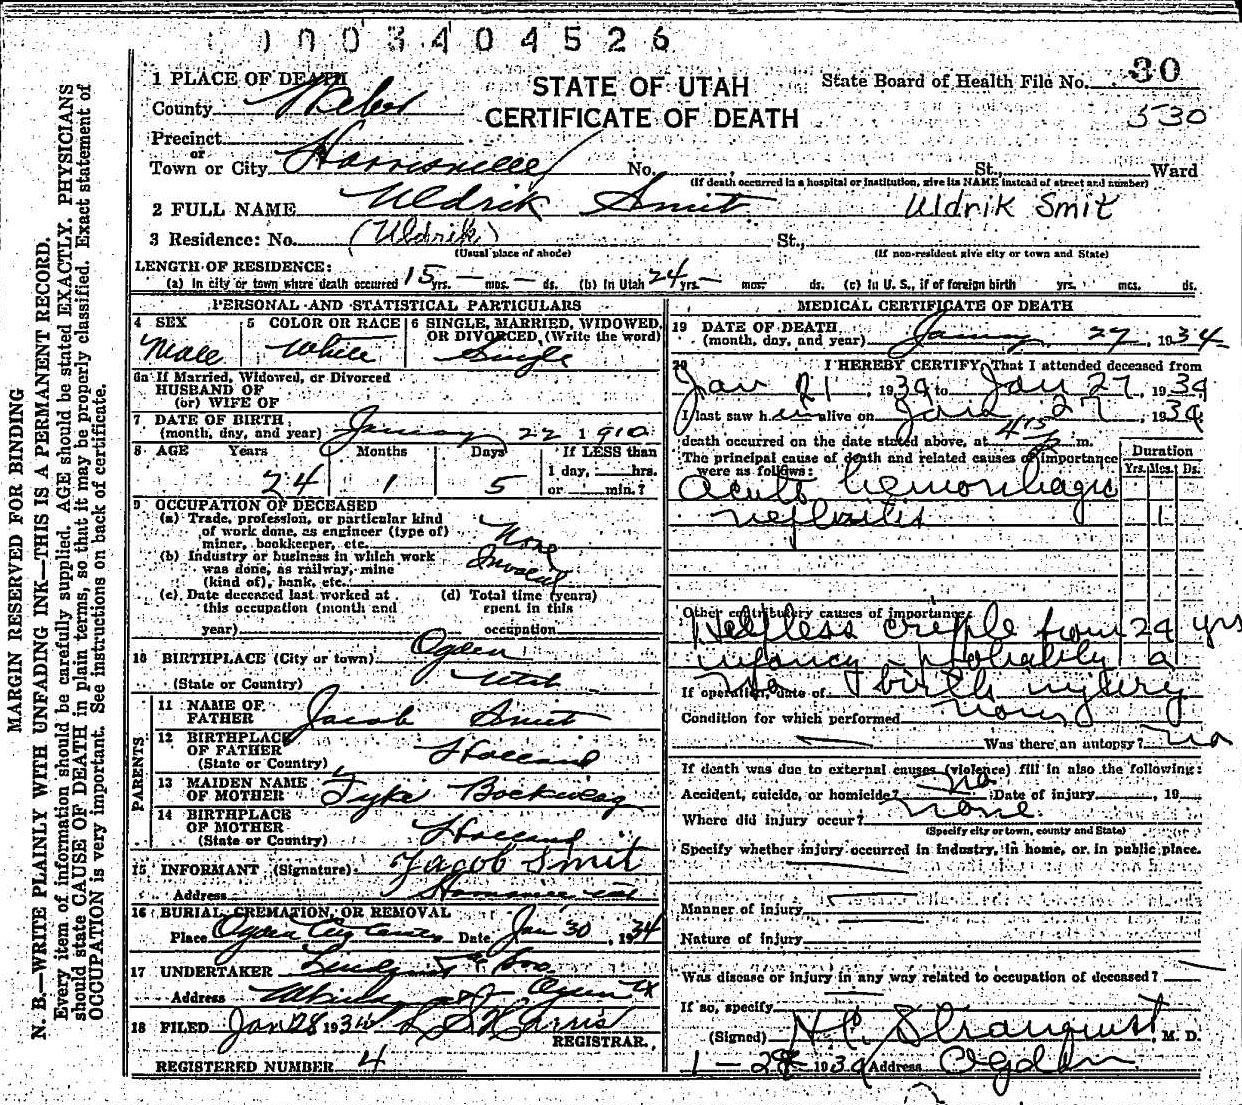 1003404526
1 PLACE OF DEATH
County Weber
Precinct
or
Town or City Harrisville No. St., Ward
(If death occurred in a hospital or institution, give its NAME instead of street and number)
STATE OF UTAH
CERTIFICATE OF DEATH
State Board of Health File No. 30
530
2 FULL NAME Uldrik Smit Uldrik Smit
3 Residence: No. (Uldrik) St.,
(Usual place of abode) (If non-resident give city or town and State)
LENGTH OF RESIDENCE:
(a) In city or town where death occurred 15 yrs. — mos. — ds. (b) In Utah 24 yrs. — mos. ds. (c) In U. S., if of foreign birth yrs. mos. ds.
PERSONAL AND STATISTICAL PARTICULARS
4 SEX 5 COLOR OR RACE 6 SINGLE, MARRIED, WIDOWED,
OR DIVORCED, (Write the word)
Male White Single
6a If Married, Widowed, or Divorced
HUSBAND OF
(or) WIFE OF
7 DATE OF BIRTH
(month, day, and year) January 22 1910
8 AGE Years Months Days If LESS than
1 day, hrs.
24 1 5 or min.?
9 OCCUPATION OF DECEASED
(a) Trade, profession, or particular kind
of work done, as engineer (type of)
miner, bookkeeper, etc. None
(b) Industry or business in which work
was done, as railway, mine
(kind of), bank, etc. Invalid
(c) Date deceased last worked at (d) Total time (years)
this occupation (month and spent in this
year) occupation
10 BIRTHPLACE (City or town) Ogden
(State or Country) Utah
PARENTS
11 NAME OF
FATHER Jacob Smit
12 BIRTHPLACE
OF FATHER Holland
(State or Country)
13 MAIDEN NAME
OF MOTHER Tyke Bockweg
14 BIRTHPLACE
OF MOTHER Holland
(State or Country)
15 INFORMANT (Signature) Jacob Smit
Address
16 BURIAL, CREMATION, OR REMOVAL
Place Ogden City Date Jan 30, 1934
17 UNDERTAKER
Address Ogden
18 FILED Jan 28 1934
REGISTRAR.
REGISTERED NUMBER 4
MEDICAL CERTIFICATE OF DEATH
19 DATE OF DEATH
(month, day, and year) January 27, 1934
20 I HEREBY CERTIFY, That I attended deceased from
Jan 21, 1934 to Jan 27, 1934
I last saw him alive on Jan 27, 1934
death occurred on the date stated above, at 4 15 p m.
The principal cause of death and related causes of importance
were as follows: Duration
Yrs. Mos. Ds.
Acute hemorrhagic
nephritis 1
Other contributory causes of importance:
Helpless cripple from 24 yrs
infancy probably a
If operation, date of no birth injury
Condition for which performed none
Was there an autopsy? no
If death was due to external causes (violence) fill in also the following:
Accident, suicide, or homicide? no Date of injury , 19
Where did injury occur? none
(Specify city or town, county and State)
Specify whether injury occurred in industry, in home, or in public place.
Manner of injury
Nature of injury
Was disease or injury in any way related to occupation of deceased? —
If so, specify
(Signed) H.C. Stranquist, M. D.
1-28-1934 Address Ogden
MARGIN RESERVED FOR BINDING
N. B.—WRITE PLAINLY WITH UNFADING INK—THIS IS A PERMANENT RECORD.
Every item of information should be carefully supplied. AGE should be stated EXACTLY. PHYSICIANS
should state CAUSE OF DEATH in plain terms, so that it may be properly classified. Exact statement of
OCCUPATION is very important. See instructions on back of certificate.